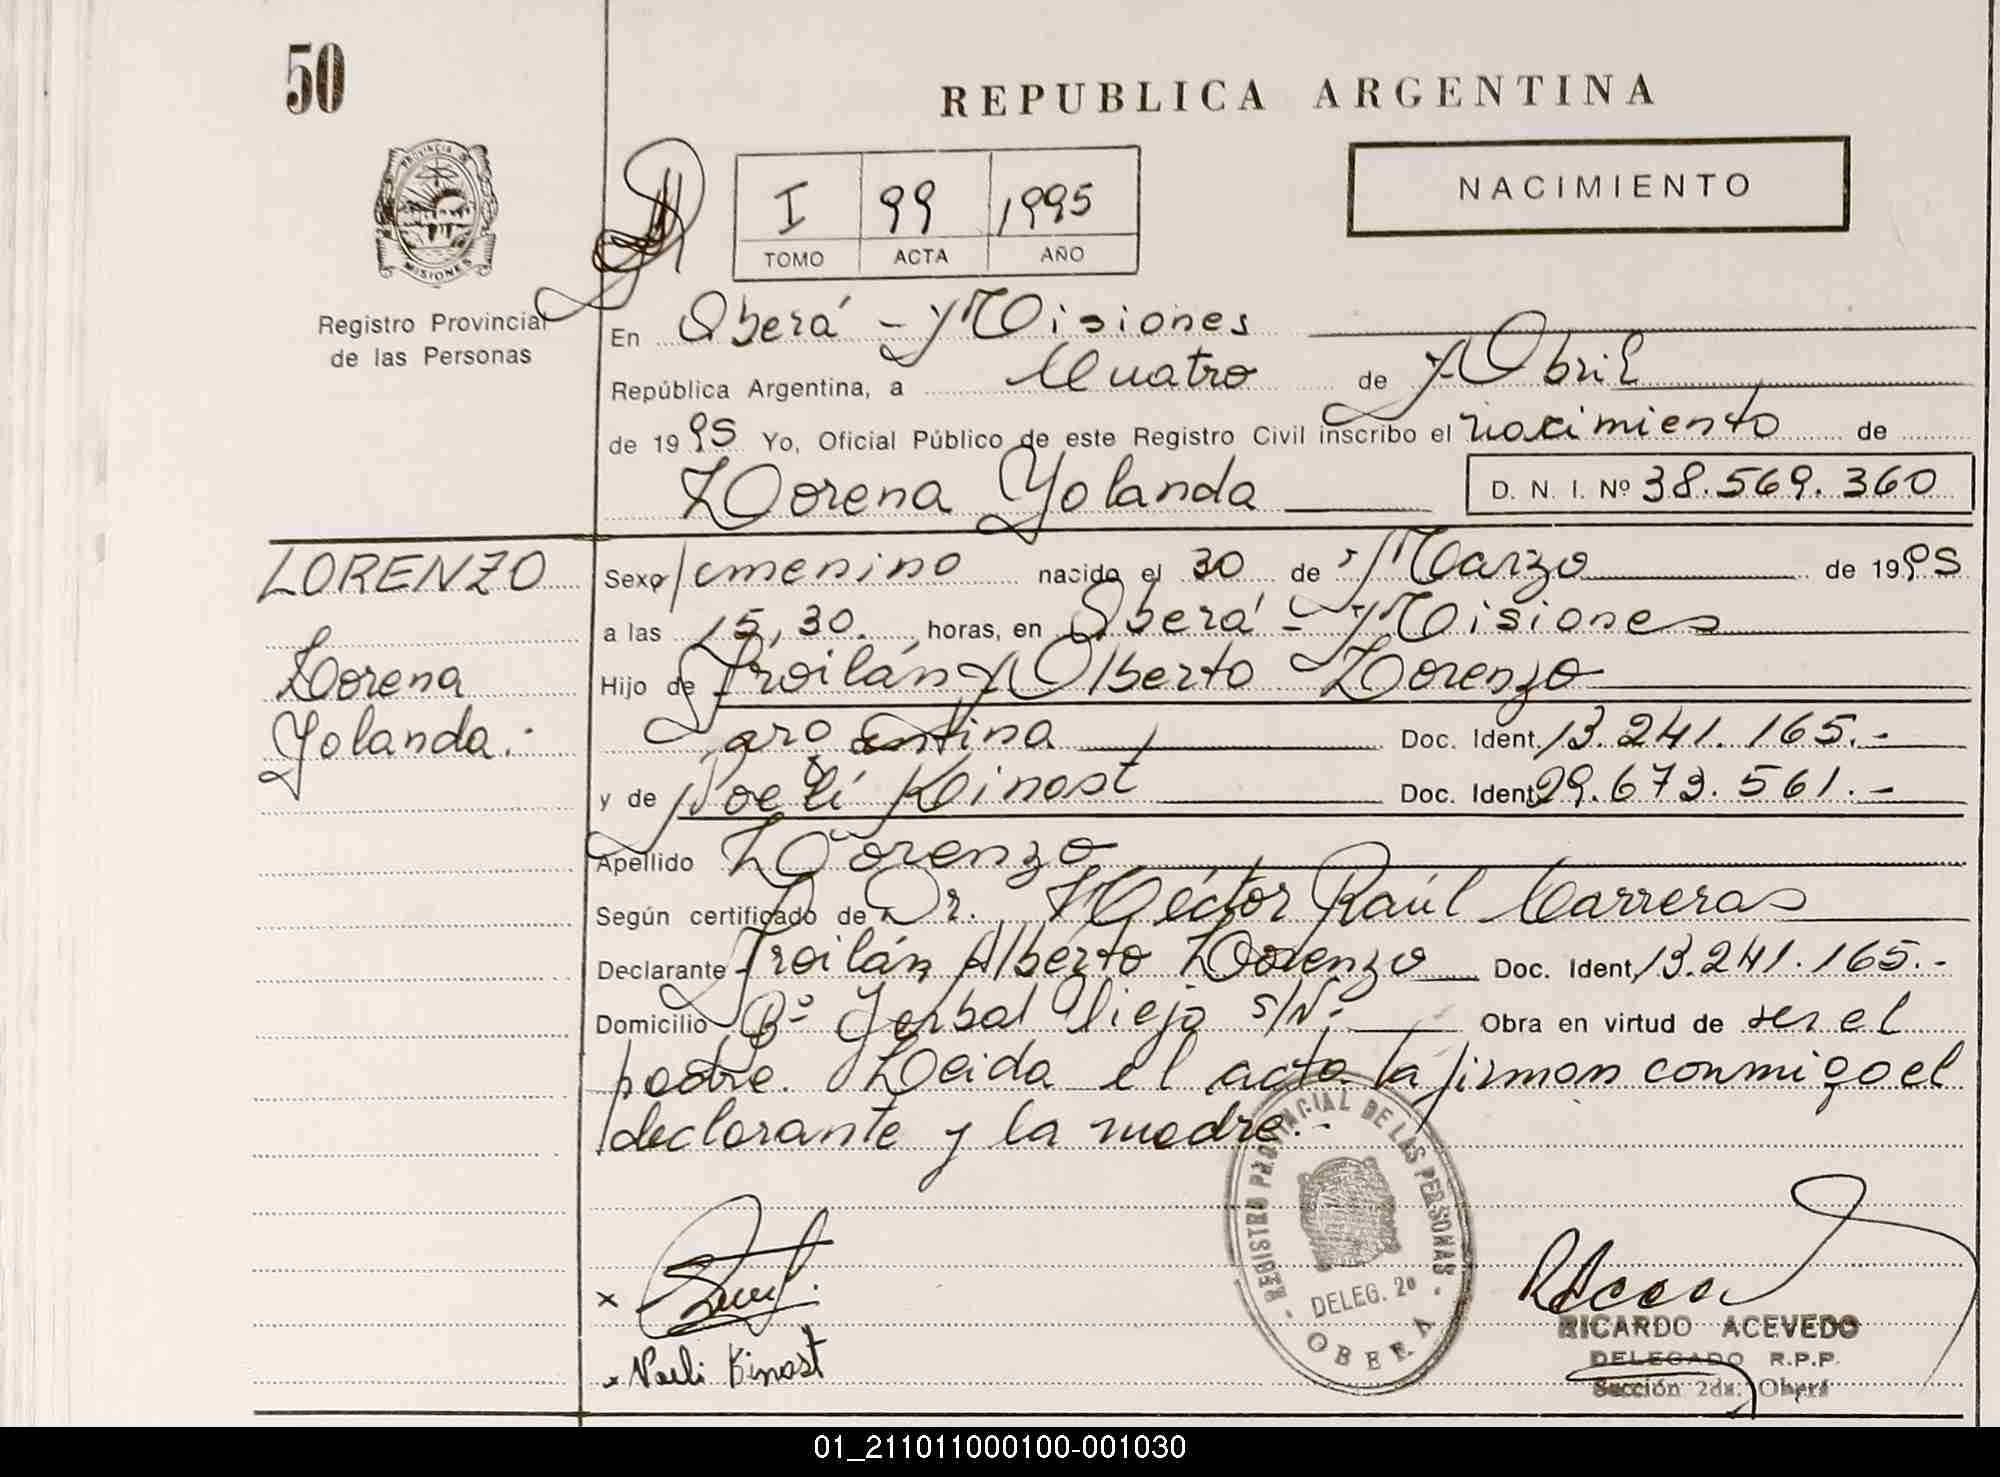 50
REPUBLICA ARGENTINA
PROVINCIA DE
MISIONES
Registro Provincial
de las Personas
I 99 1995
TOMO ACTA AÑO
NACIMIENTO
En Oberá - Misiones
República Argentina, a Cuatro de Abril
de 1995 Yo, Oficial Público de este Registro Civil inscribo el nacimiento de
Lorena Yolanda
D. N. I. Nº 38.569.360
LORENZO
Lorena
Yolanda.-
Sexo femenino nacido el 30 de Marzo de 1995
a las 15,30. horas, en Oberá - Misiones
Hijo de Froilán Alberto Lorenzo
argentina Doc. Ident. 13.241.165.-
y de Noelí Kinost Doc. Ident. 29.673.561.-
Apellido Lorenzo
Según certificado de Dr. Héctor Raúl Carreras
Declarante Froilán Alberto Lorenzo Doc. Ident. 13.241.165.-
Domicilio Bº Yerbal Viejo S/N.- Obra en virtud de ser el
padre. Leida el acta la firman conmigo el
declarante y la madre.-
REGISTRO PROVINCIAL DE LAS PERSONAS
DELEG. 2ª
OBERA
x
x Noeli Kinost
RICARDO ACEVEDO
DELEGADO R.P.P.
Sección 2da. Oberá
01_211011000100-001030